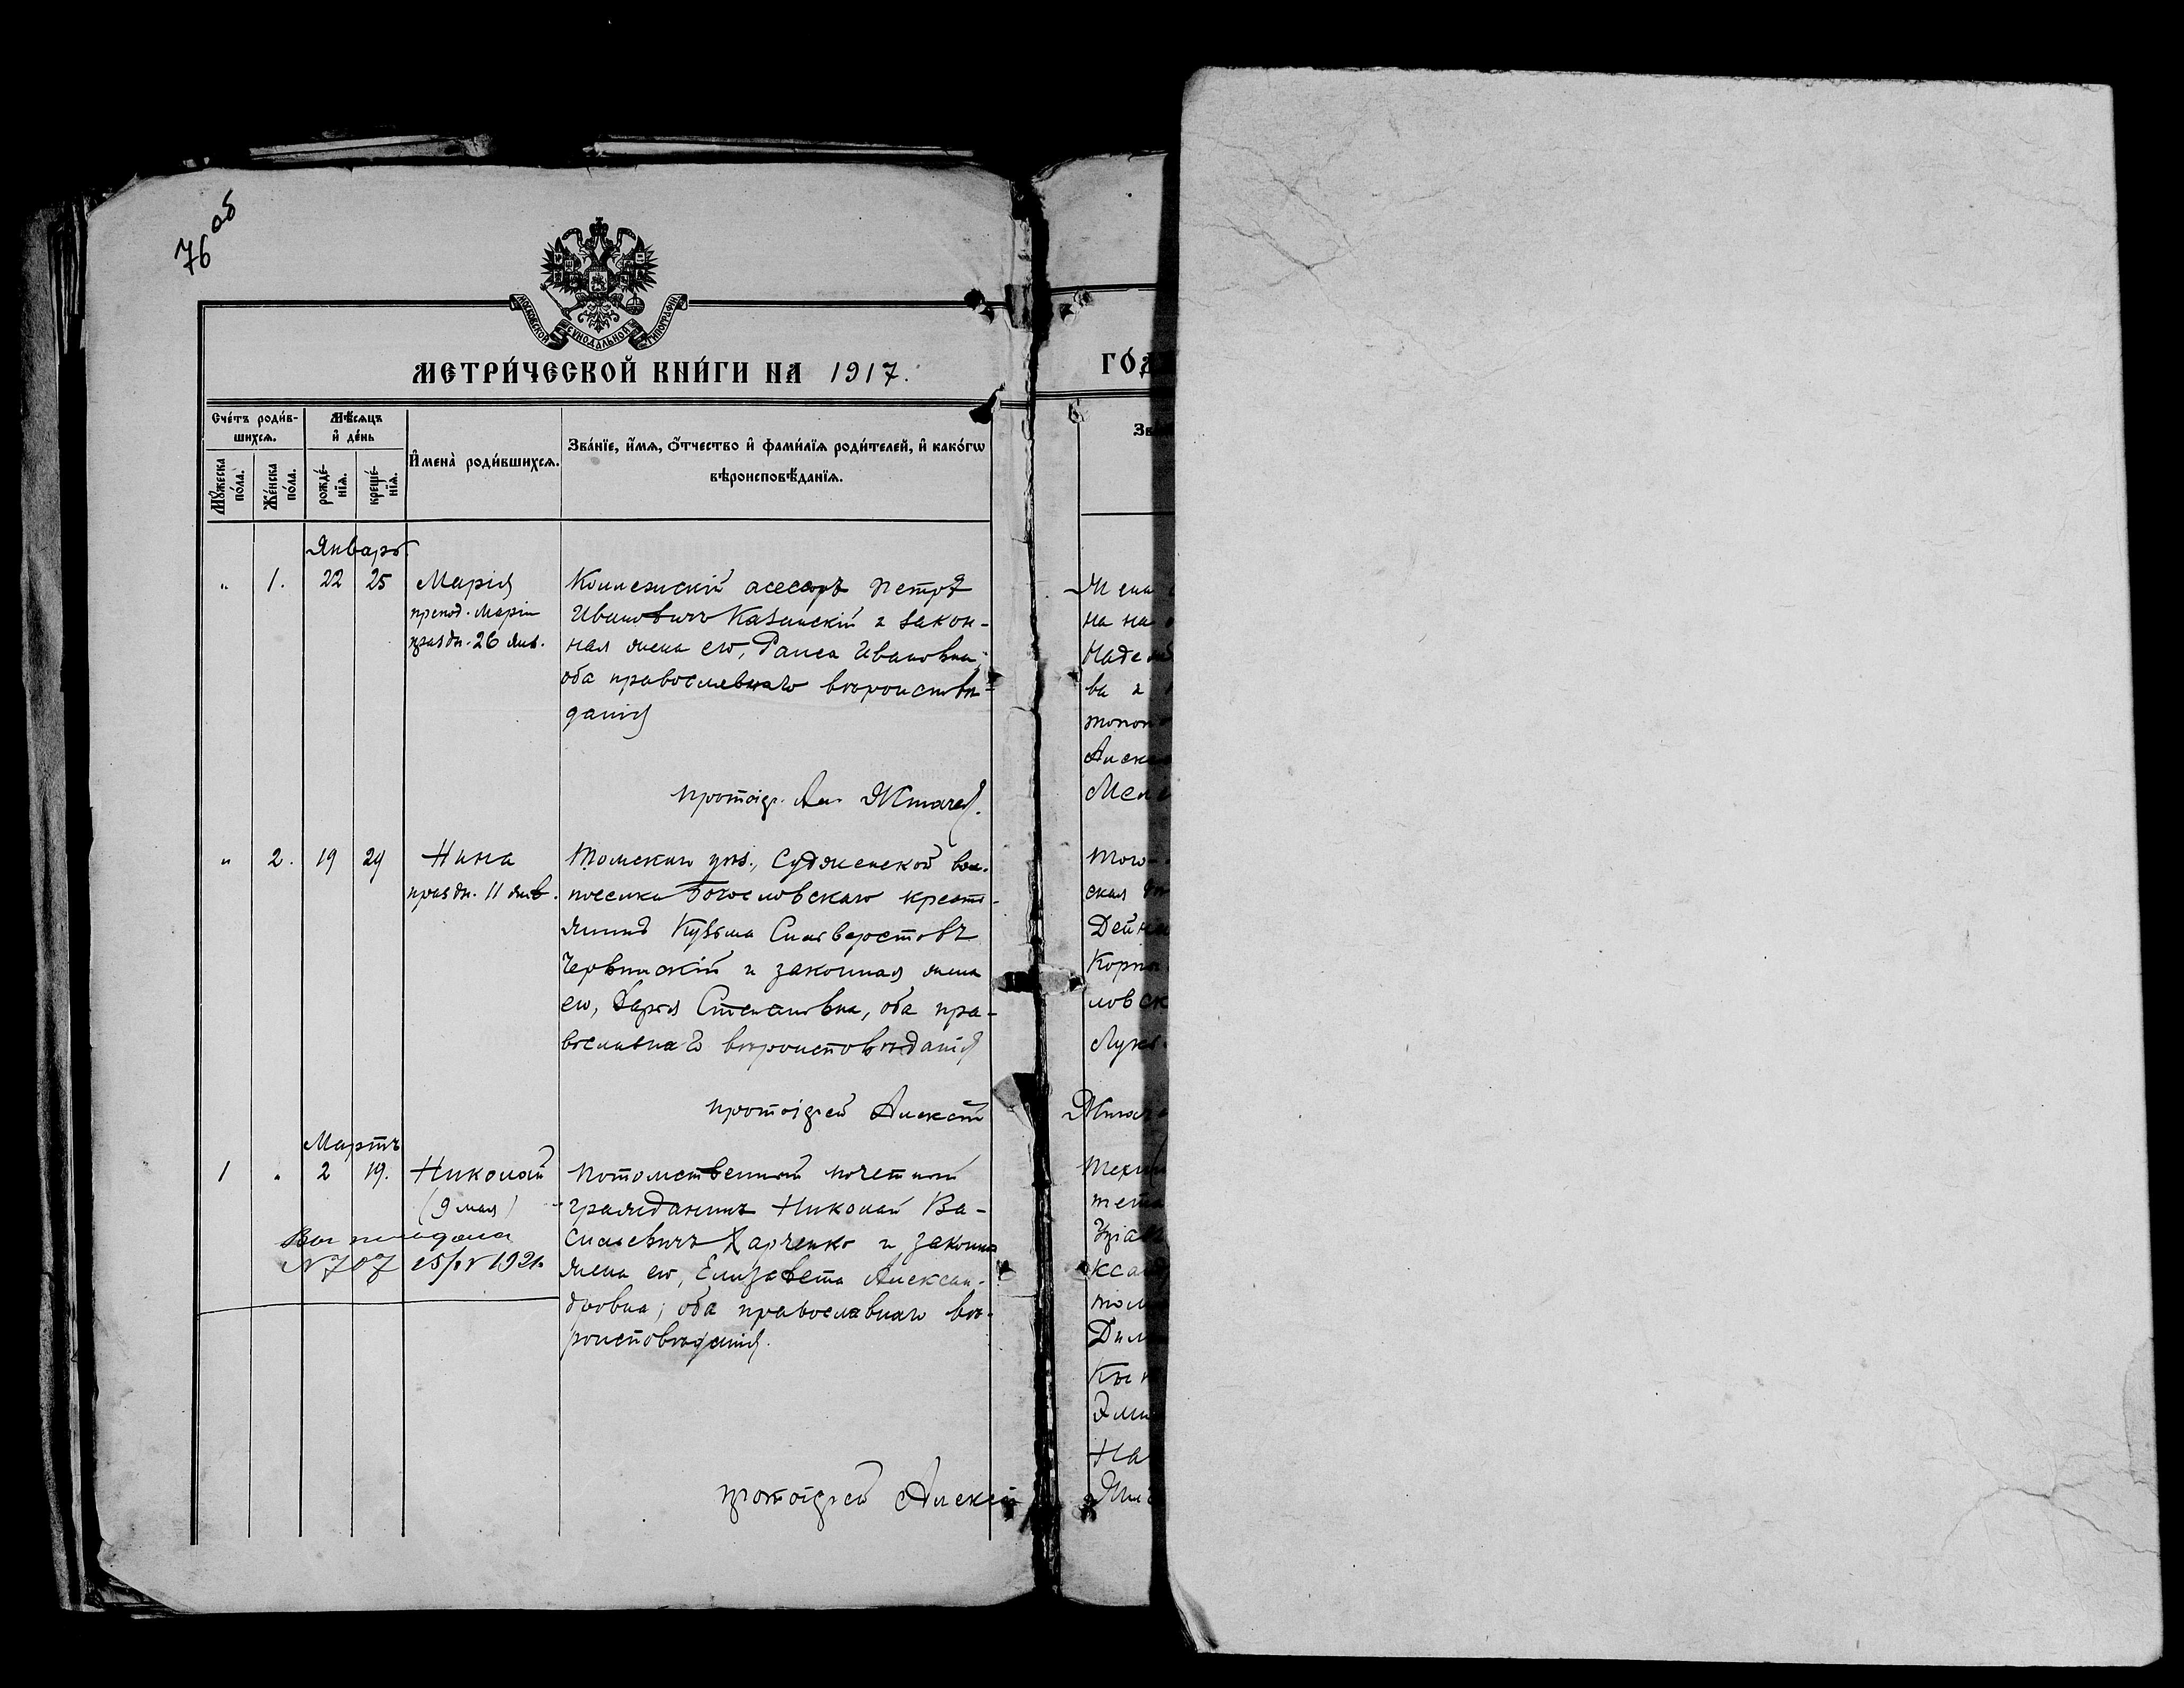 76 об
МОСКОВСКОЙ СѴНОДАЛЬНОЙ ТИПОГРАФІИ
МЕТРИ́ЧЕСКОЙ КНИ́ГИ НА 1917.
ГО́Д
Сче́тъ роди́в-
шихсѧ.
Мѣ́сѧцъ
и҆ де́нь
Мꙋ́жеска
по́ла.
Же́нска
по́ла.
рожде́-
нїѧ.
креще́-
нїѧ.
И҆мена̀ роди́вшихсѧ.
Зва́нїе, и҆́мѧ, ѻ҆́тчество и҆ фами́лїѧ роди́телей, и҆ како́гѡ
вѣроисповѣ́данїѧ.
Зв
Январь
" 1. 22 25 Марія
препод. Маріи
праздн. 26 янв.
Коллежскій асессоръ Петръ
Ивановичъ Казанскій и закон-
ная жена его, Раиса Ивановна;
оба православнаго вѣроисповѣ-
данія
протоіер. Ал.
" 2. 19 29 Нина
праздн. 11 янв.
Томскаго уѣз., Судженской вол.
поселка Богословскаго кресть-
янинъ Кузьма Сильверстовъ
Червинскій и законная жена
его, Дарья Степановна, оба пра-
вославнаго вѣроисповѣданія
протоіерей Алексій
Мартъ
1 " 2 19. Николай
(9 мая)
№ 707
Потомственный почетный
гражданинъ Николай Ва-
сильевичъ Харченко и законная
жена его, Елизавета Алексан-
дровна; оба православнаго вѣ-
роисповѣданія.
протоіерей Алексій
на на
Наде
ва и
Алекс
Меле
ская
Дейн
Корни
ловск
Лук
ксанд
Дим
На